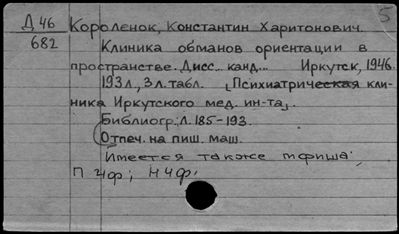 5
Д 46
682
Короленок, Константин Харитонович.
Клиника обманов ориентации в
пространстве. Дисс... канд... Иркутск, 1946.
193 л., 3 л. табл. [Психиатрическая кли-
ника Иркутского мед. ин-та].
Библиогр.: л. 185-193.
Отпеч. на пиш. маш.
Имеется также тфиша:
П 4ф; Н 4ф.